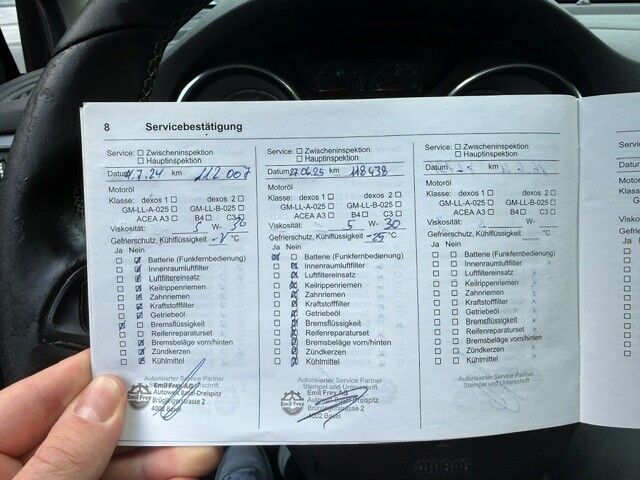 8 Servicebestätigung
Service: ☐ Zwischeninspektion
☐ Hauptinspektion
Datum 4.7.24 km 112 007
Motoröl
Klasse: dexos 1 ☐ dexos 2 ☐
GM-LL-A-025 ☐ GM-LL-B-025 ☐
ACEA A3 ☐ B4 ☐ C3 ☐
Viskosität: 5 W- 30
Gefrierschutz, Kühlflüssigkeit °C
Ja Nein
☐ ☑ Batterie (Funkfernbedienung)
☐ ☑ Innenraumluftfilter
☐ ☑ Luftfiltereinsatz
☐ ☑ Keilrippenriemen
☐ ☑ Zahnriemen
☐ ☑ Kraftstofffilter
☐ ☑ Getriebeöl
☑ ☐ Bremsflüssigkeit
☐ ☑ Reifenreparaturset
☐ ☑ Bremsbeläge vorn/hinten
☐ ☑ Zündkerzen
☐ ☑ Kühlmittel
Autorisierter Service Partner
Emil Frey AG
Autowelt Basel-Dreispitz
Brüglingerstrasse 2
4002 Basel
Service: ☐ Zwischeninspektion
☐ Hauptinspektion
Datum 27.06.25 km 118 438
Motoröl
Klasse: dexos 1 ☐ dexos 2 ☐
GM-LL-A-025 ☐ GM-LL-B-025 ☐
ACEA A3 ☐ B4 ☐ C3 ☐
Viskosität: 5 W- 30
Gefrierschutz, Kühlflüssigkeit -25 °C
Ja Nein
☑ ☐ Batterie (Funkfernbedienung)
☐ ☑ Innenraumluftfilter
☐ ☑ Luftfiltereinsatz
☐ ☑ Keilrippenriemen
☐ ☑ Zahnriemen
☐ ☑ Kraftstofffilter
☐ ☑ Getriebeöl
☐ ☑ Bremsflüssigkeit
☐ ☑ Reifenreparaturset
☐ ☑ Bremsbeläge vorn/hinten
☐ ☑ Zündkerzen
☐ ☑ Kühlmittel
Autorisierter Service Partner
Stempel und Unterschrift
Emil Frey AG
Autowelt Basel-Dreispitz
Brüglingerstrasse 2
4002 Basel
Service: ☐ Zwischeninspektion
☐ Hauptinspektion
Datum km
Motoröl
Klasse: dexos 1 ☐ dexos 2 ☐
GM-LL-A-025 ☐ GM-LL-B-025 ☐
ACEA A3 ☐ B4 ☐ C3 ☐
Viskosität: W-
Gefrierschutz, Kühlflüssigkeit °C
Ja Nein
☐ ☐ Batterie (Funkfernbedienung)
☐ ☐ Innenraumluftfilter
☐ ☐ Luftfiltereinsatz
☐ ☐ Keilrippenriemen
☐ ☐ Zahnriemen
☐ ☐ Kraftstofffilter
☐ ☐ Getriebeöl
☐ ☐ Bremsflüssigkeit
☐ ☐ Reifenreparaturset
☐ ☐ Bremsbeläge vorn/hinten
☐ ☐ Zündkerzen
☐ ☐ Kühlmittel
Autorisierter Service Partner
Stempel und Unterschrift
AIRBAG